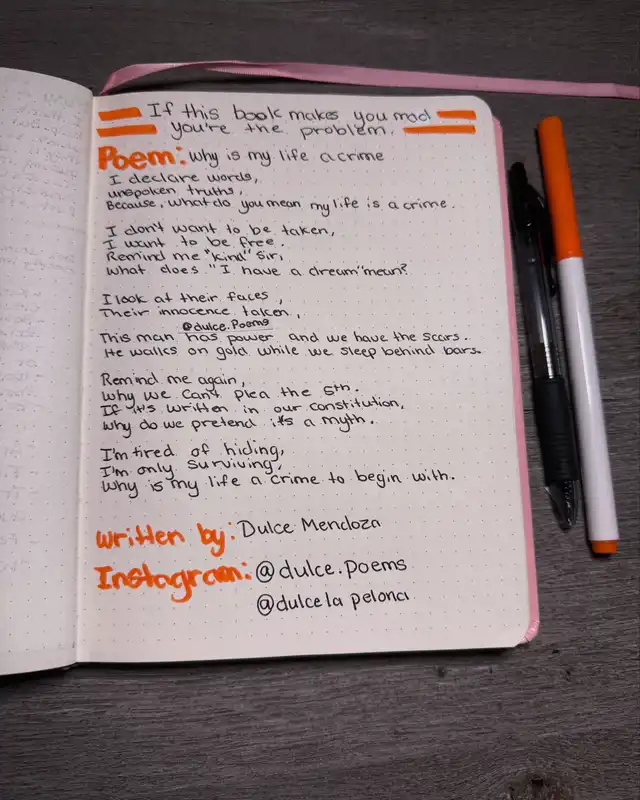 If this book makes you mad
you're the problem.
Poem: Why is my life a crime
I declare words,
unspoken truths,
Because, what do you mean my life is a crime.
I don't want to be taken,
I want to be free.
Remind me "kind" sir,
What does "I have a dream" mean?
I look at their faces,
Their innocence taken,
@dulce.Poems
This man has power and we have the scars.
He walks on gold while we sleep behind bars.
Remind me again,
Why we can't plea the 5th.
If it's written in our constitution,
Why do we pretend it's a myth.
I'm tired of hiding,
I'm only surviving,
Why is my life a crime to begin with.
Written by: Dulce Mendoza
Instagram: @dulce.poems
@dulcela pelona